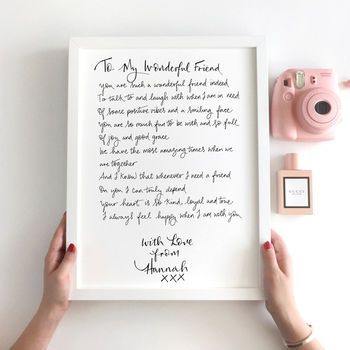 To My Wonderful Friend
You are such a wonderful friend indeed
To talk to and laugh with when I am in need
Of some positive vibes and a smiling face
You are so much fun to be with and so full
of joy and good grace
We have the most amazing times when we
are together
And I know that whenever I need a friend
On you I can truly depend
Your heart is so kind, loyal and true
I always feel happy when I am with you
With Love
from
Hannah
xxx
GUCCI